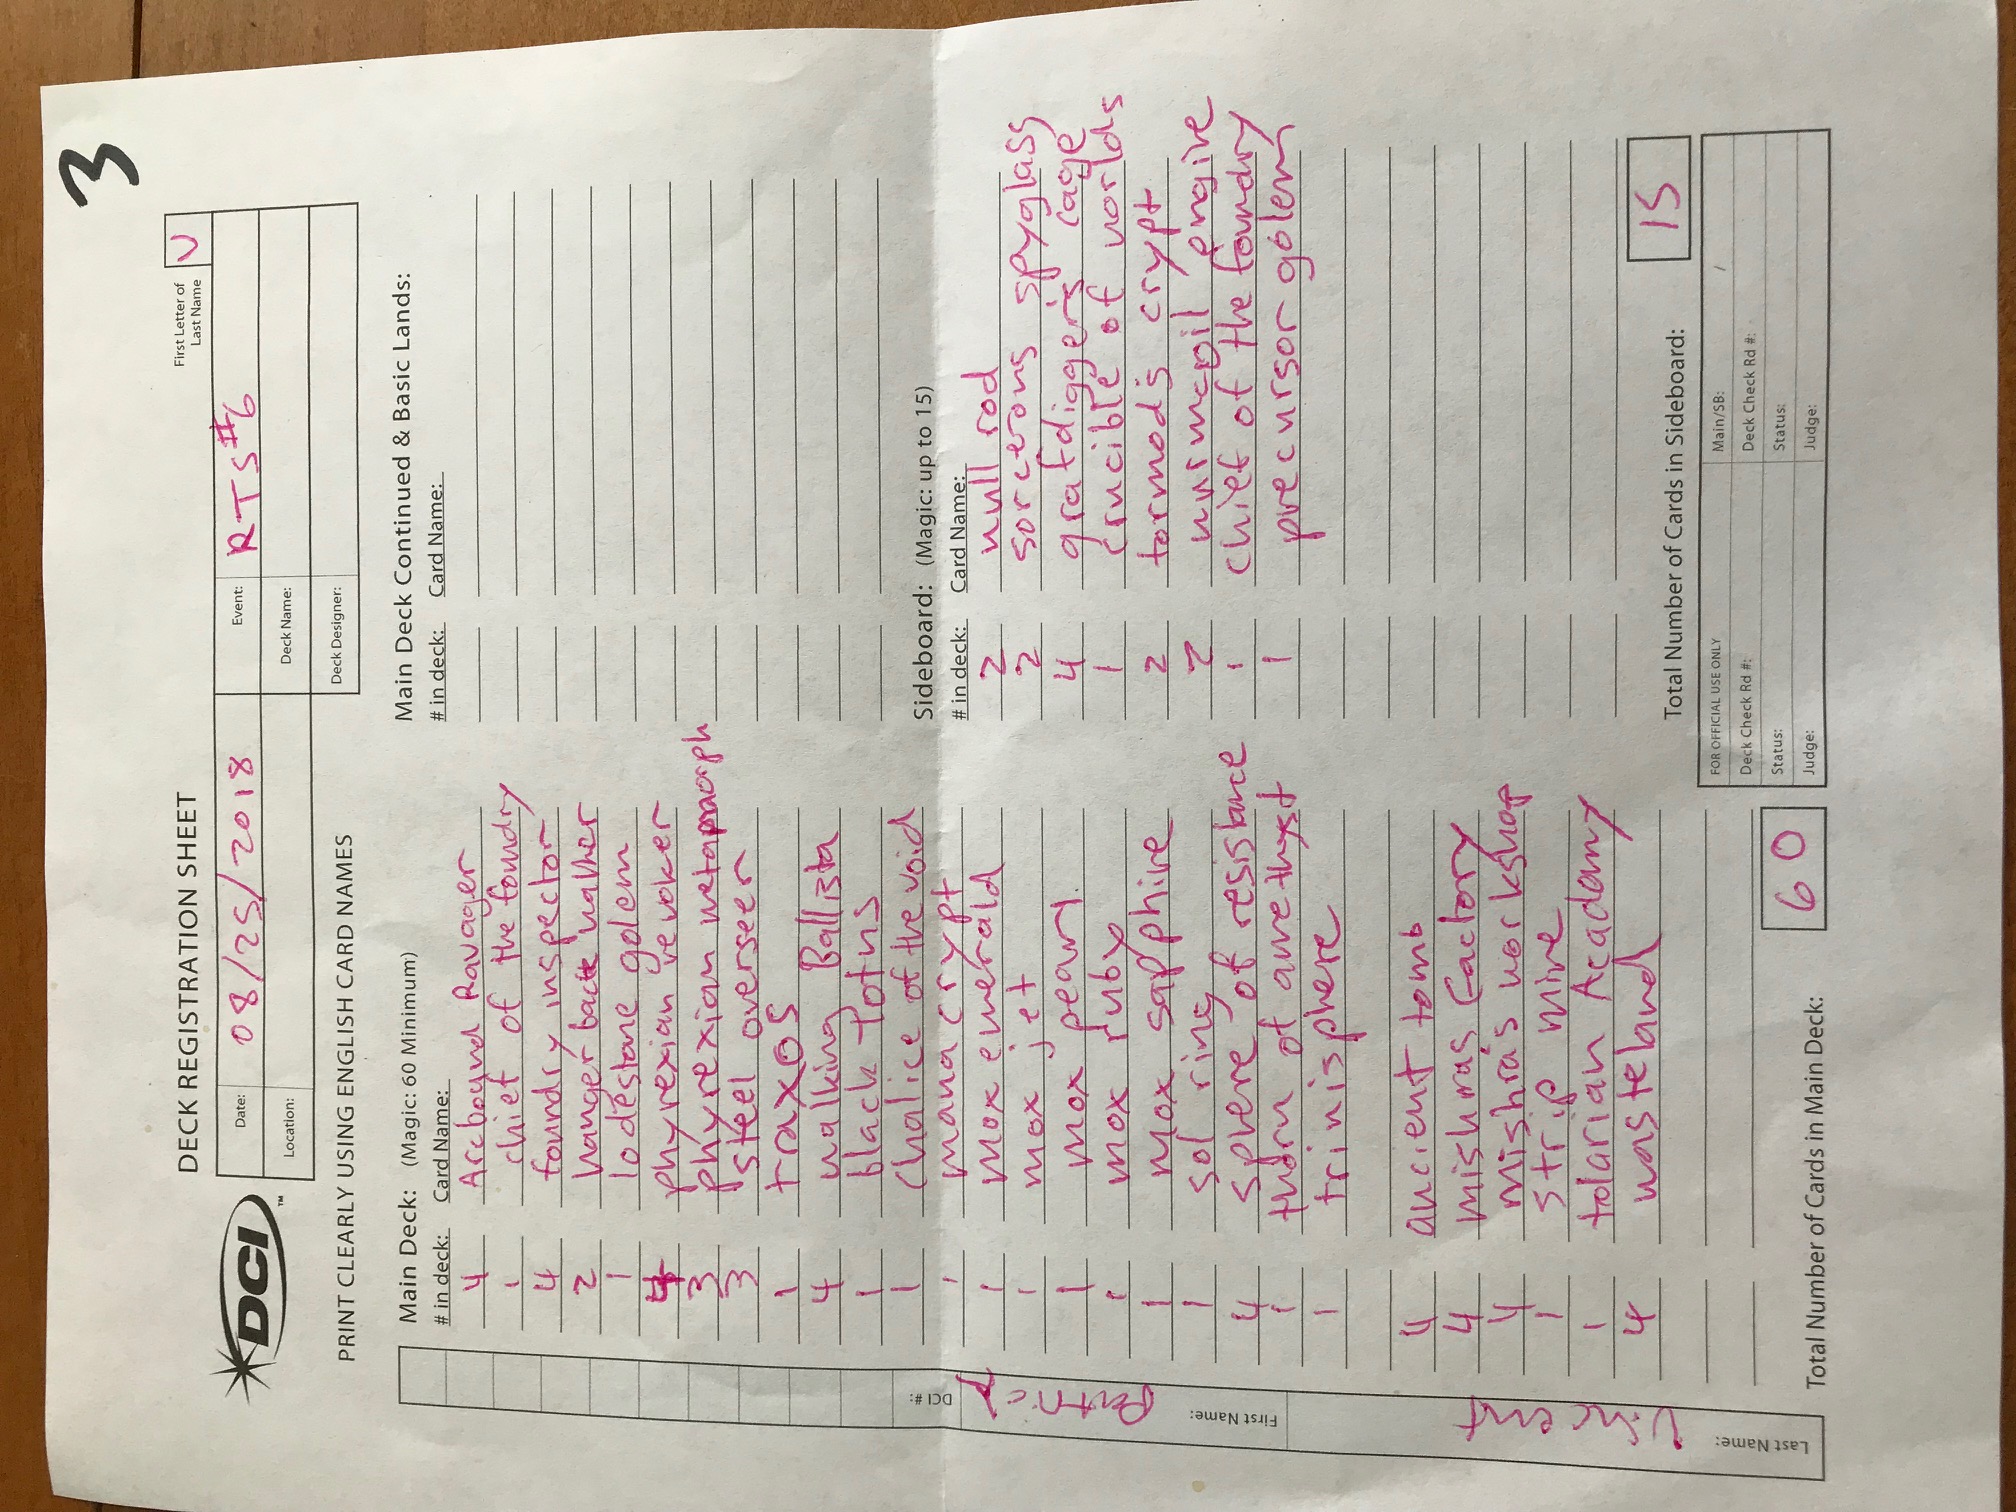 3
DECK REGISTRATION SHEET
First Letter of
Last Name
V
DCI
TM
Date: 08/25/2018
Event: RTS #6
Location:
Deck Name:
Deck Designer:
PRINT CLEARLY USING ENGLISH CARD NAMES
Main Deck: (Magic: 60 Minimum)
# in deck: Card Name:
4 Arcbound Ravager
1 chief of the foundry
4 foundry inspector
2 hanger back walker
1 lodestone golem
4 phyrexian revoker
3 phyrexian metapmorph
3 steel overseer
1 traxos
4 walking Ballista
1 black Lotus
1 Chalice of the void
1 mana crypt
1 mox emerald
1 mox jet
1 mox pearl
1 mox ruby
1 mox sapphire
1 sol ring
4 sphere of resistance
1 thorn of amethyst
1 trinisphere
4 ancient tomb
4 mishras factory
4 mishra's workshop
1 strip mine
1 tolarian Acadamy
4 wasteland
Total Number of Cards in Main Deck: 60
Main Deck Continued & Basic Lands:
# in deck: Card Name:
Sideboard: (Magic: up to 15)
# in deck: Card Name:
2 null rod
2 sorcerous spyglass
4 grafdigger's cage
1 crucible of worlds
2 tormod's crypt
2 wurmcoil engine
1 chief of the foundry
1 precursor golem
Total Number of Cards in Sideboard: 15
FOR OFFICIAL USE ONLY
Main/SB: /
Deck Check Rd #:
Deck Check Rd #:
Status:
Status:
Judge:
Judge:
DCI #:
First Name: Patrick
Last Name: Vincent